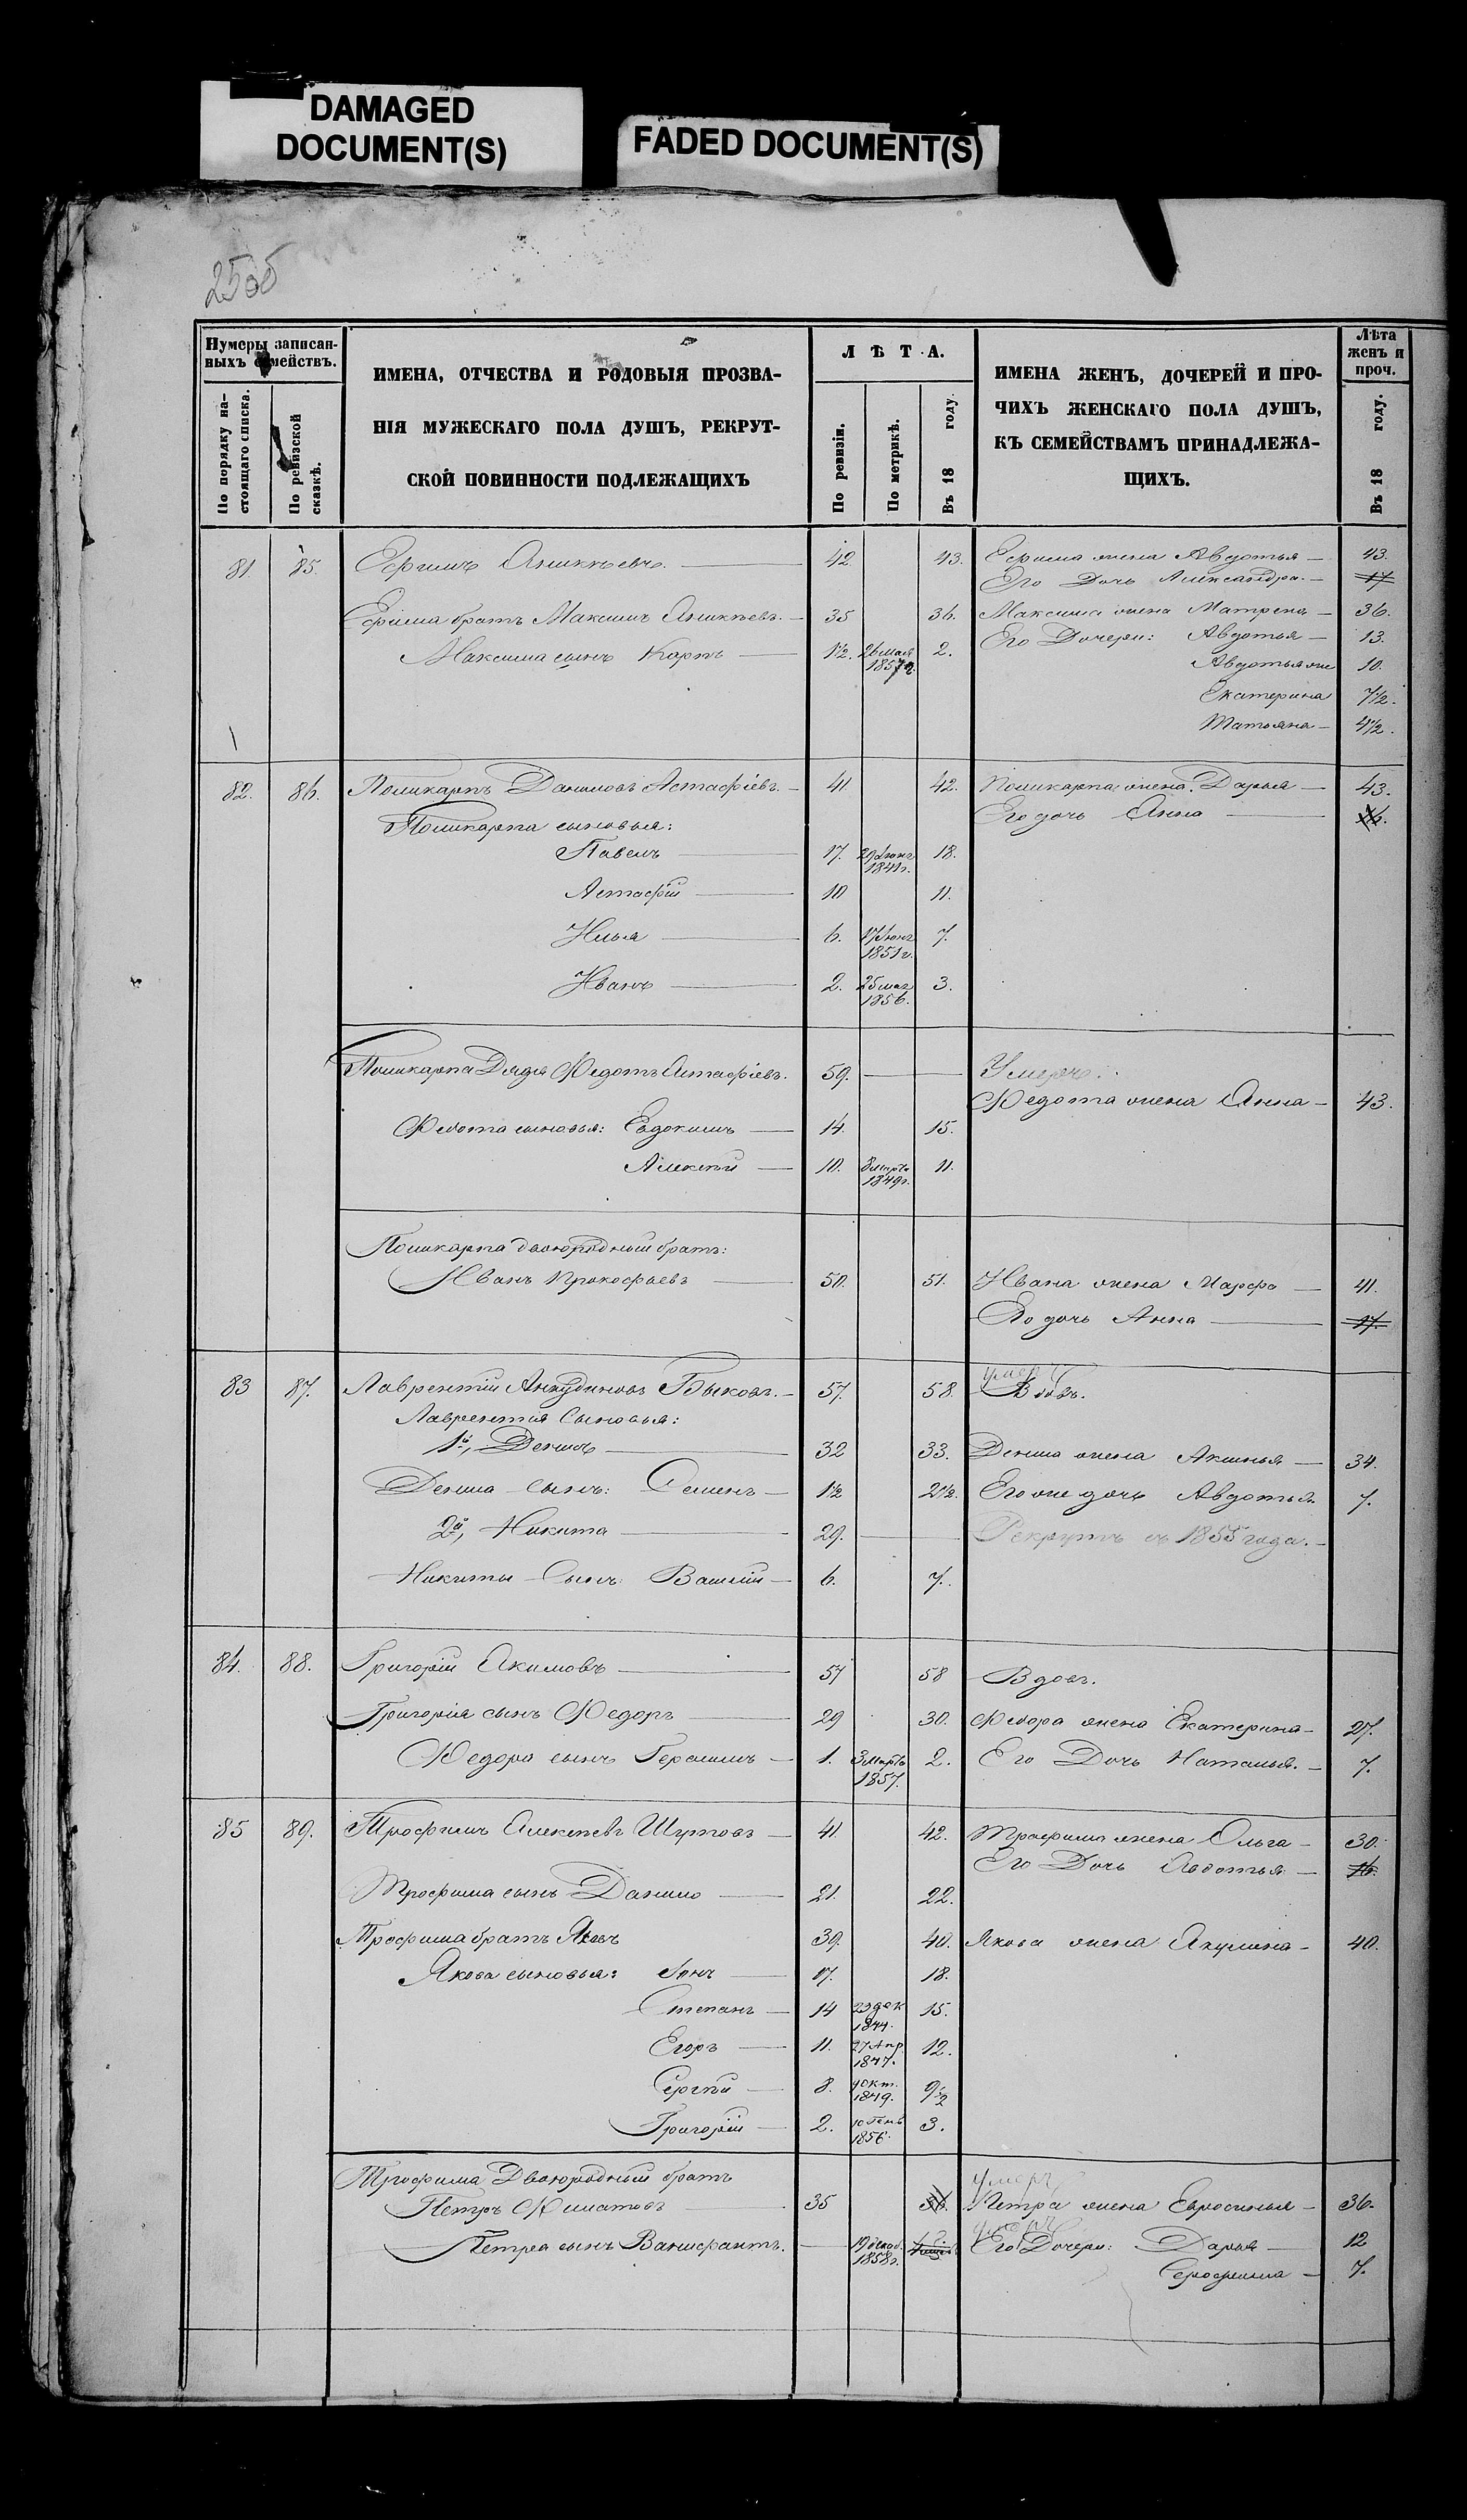 DAMAGED
DOCUMENT(S)
FADED DOCUMENT(S)
Нумеры записан-
ныхъ семействъ.
По порядку на-
стоящаго списка.
По ревизской
сказкѣ.
ИМЕНА, ОТЧЕСТВА И РОДОВЫЯ ПРОЗВА-
НІЯ МУЖЕСКАГО ПОЛА ДУШЪ, РЕКРУТ-
СКОЙ ПОВИННОСТИ ПОДЛЕЖАЩИХЪ
ЛѢТА.
По ревизіи.
По метрикѣ.
Въ 18 году.
ИМЕНА ЖЕНЪ, ДОЧЕРЕЙ И ПРО-
ЧИХЪ ЖЕНСКАГО ПОЛА ДУШЪ,
КЪ СЕМЕЙСТВАМЪ ПРИНАДЛЕЖА-
ЩИХЪ.
Лѣта
женъ и
проч.
Въ 18 году.
81. 85. Ефимъ Аникѣевъ. 42. 43. Ефима жена Авдотья 43.
Его Дочь Александра. 17
Ефима братъ Максимъ Аникѣевъ. 35 36. Максима жена Матрена 36.
Максима сынъ Карпъ 1½. 26 мая 2. Его Дочери: Авдотья 13.
Авдотья же 10.
Екатерина 7½.
Татьяна 4½.
82. 86. Поликарпъ Даниловъ Астафіевъ. 41 42. Поликарпа жена Дарья 43.
Поликарпа сыновья: Его дочь Анна
Павелъ 17. 29 Іюня 18.
1841 г.
Астафій 10 11.
Илья 6. 17 Іюня 7.
1851 г.
Иванъ 2. 25 мая 3.
1856.
Поликарпа Дядя Федотъ Астафіевъ. 59. Умеръ.
Федота жена Анна 43.
Федота сыновья: Евдокимъ 14. 15.
Алексѣй 10. 8 мартъ 11.
1849 г.
Поликарпа двоюродный братъ:
Иванъ Прокофьевъ 50. 51. Ивана жена Марфа 41.
Его дочь Анна 17.
83 87. Лаврентій Анкудиновъ Быковъ. 57. 58. умеръ
Вдовъ.
Лаврентія Сыновья:
1й, Денисъ 32 33. Дениса жена Аксинья 34.
Дениса Сынъ: Семенъ 1½ 2½. Его же дочь Авдотья 7.
2й, Никита 29. Рекрутъ съ 1855 года.
Никиты Сынъ: Василій 6. 7.
84. 88. Григорій Акимовъ 57 58 Вдовъ.
Григорія сынъ Федоръ 29 30. Федора жена Екатерина 27.
Федора сынъ Герасимъ 1. 3 Мартъ 2. Его Дочь Наталья. 7.
1857.
85 89. Трофимъ Алексѣевъ Шутовъ 41. 42. Трофима жена Ольга 30.
Его Дочь Авдотья 16.
Трофима сынъ Данило 21. 22.
Трофима братъ Яковъ 39. 40. Якова жена Акулина 40.
Якова сыновья: 17. 18.
Степанъ 14 29 дек 15.
1844.
Егоръ 11. 27 Апр 12.
1847.
Сергѣй 8. окт. 9½
1849.
Григорій 2. 10 Генв 3.
1856.
Трофима Двоюродный братъ умеръ
Петръ Филатовъ 35 36. Петра жена Евросинья 36.
умеръ
Петра сынъ Ванифантъ. 19 декаб. Его Дочери: Дарья 12
1858 г.
Серафима 7.